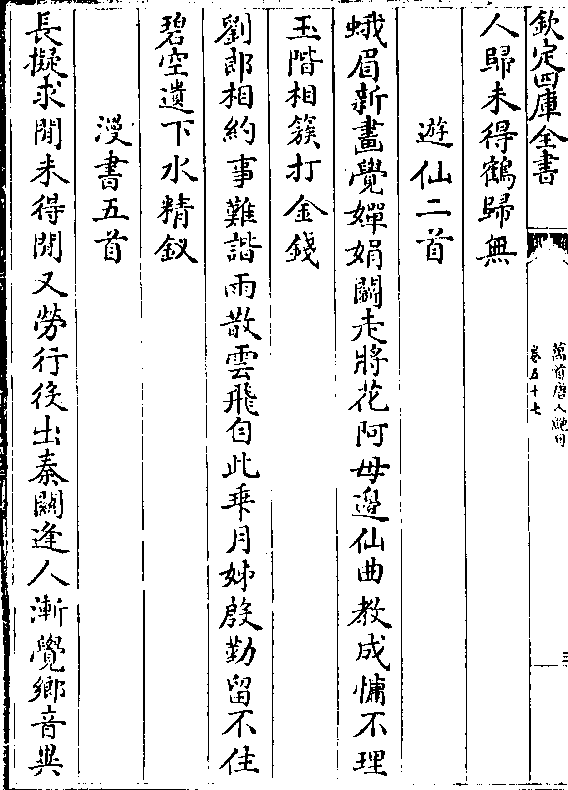 欽定四庫全書
萬首唐人絶句
卷五十七
人歸未得鶴歸無
遊仙二首
蛾眉新畫覺嬋娟闘走將花阿母邉仙曲教成慵不理
玉階相簇打金錢
劉郎相約事難諧雨散雲飛自此乖月姊殷勤留不住
碧空遺下水精釵
漫書五首
長擬求閒未得閒又勞行役出秦關逢人漸覺鄉音異